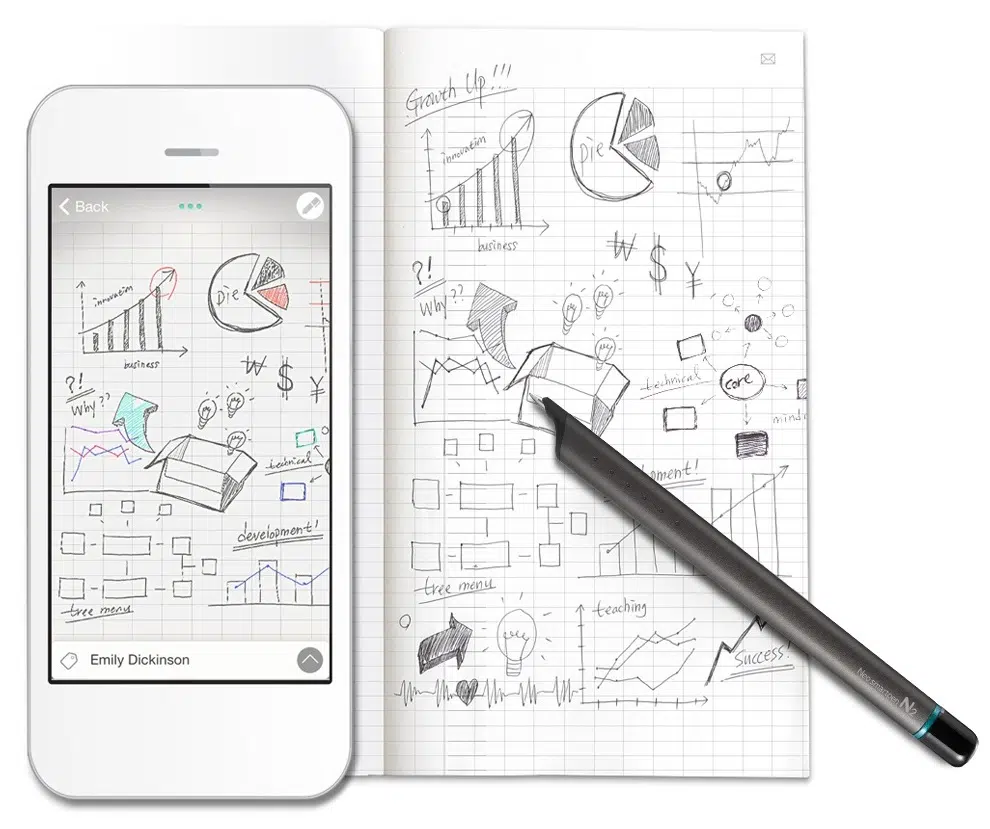 Back
innovation
Die
business
₩ $ ¥
?!
Why??
technical
development!
tree menu
Emily Dickinson
Growth Up!!!
innovation
Die
business
₩ $ ¥
?!
Why??
technical
core
tree menu
teaching
Success!
Neo smartpen N2